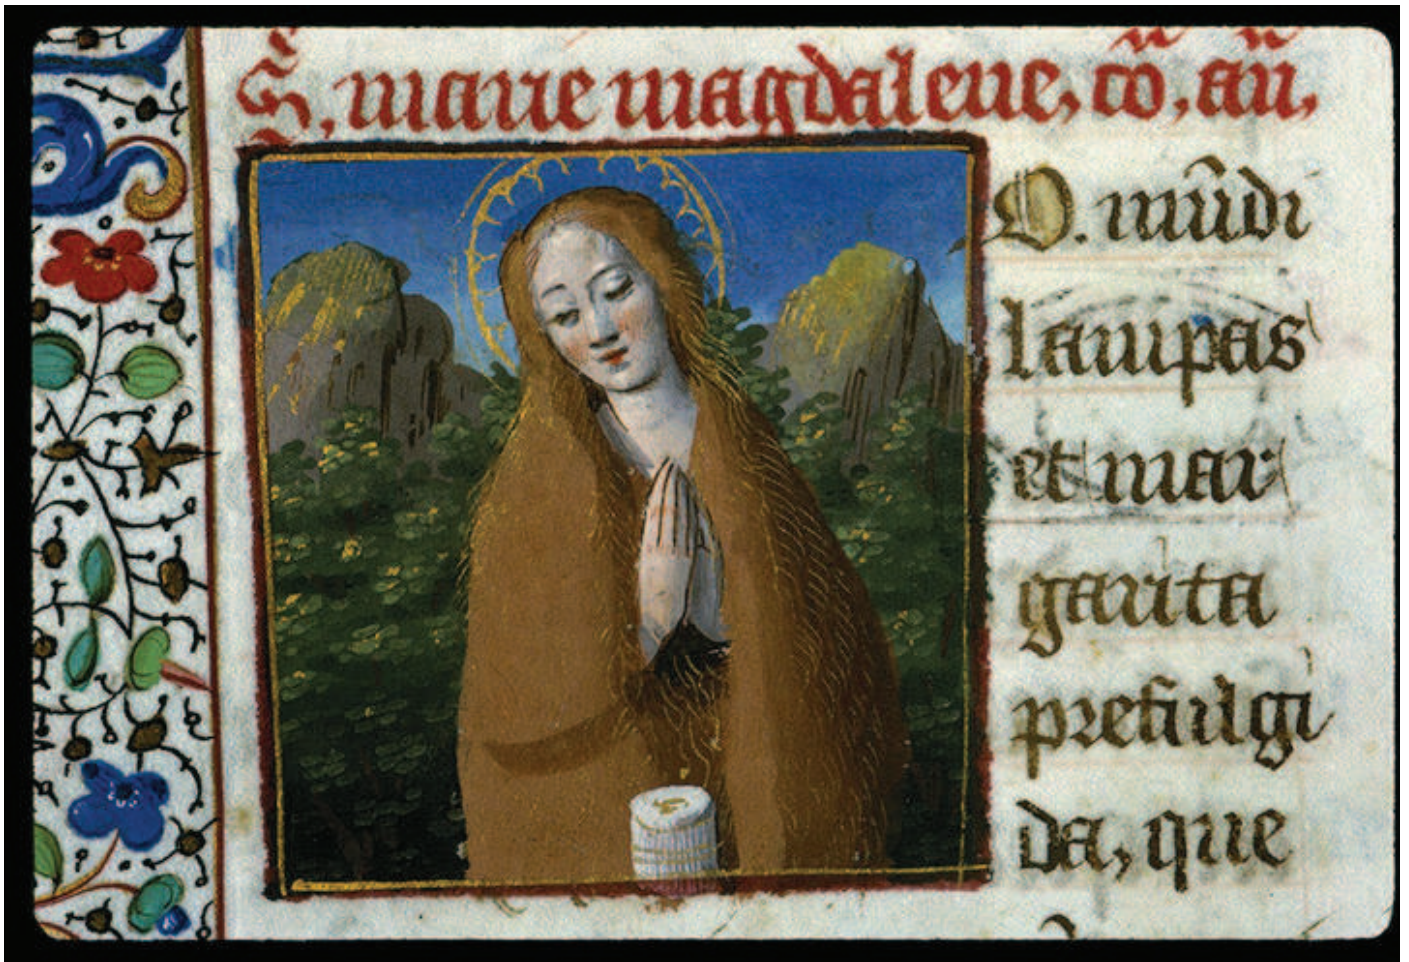 S. marie magdalene, cō, an̄,
O. mūdi
lampas
et mar
garita
prefulgi
da, que